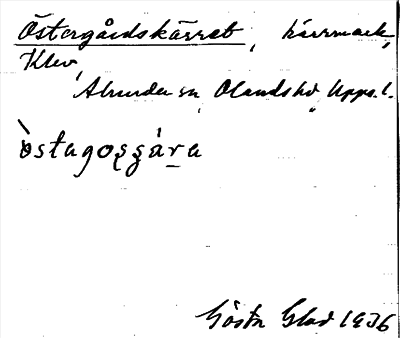 Östergårdskärret, kärrmark,
Klev,
Alunda sn Olands hd Upps. l.
òstagoʂʂára
Gösta Glad 1936